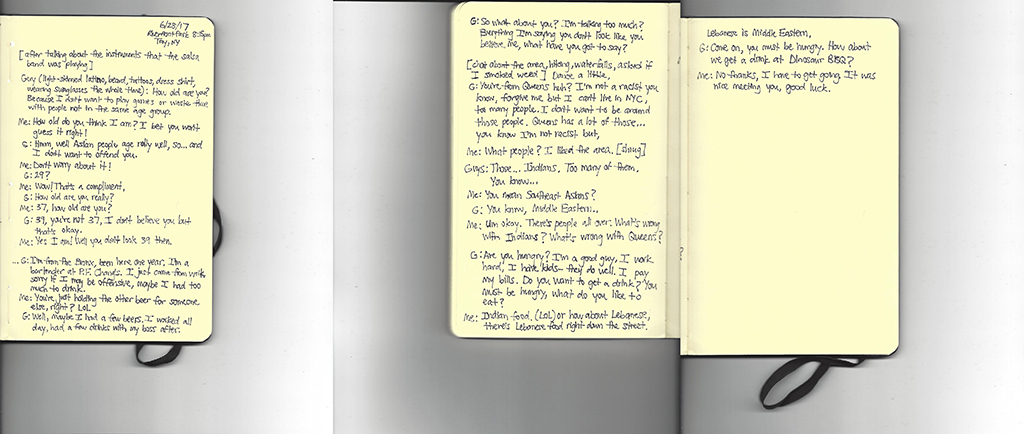 6/23/17
Riverfront Park 8:35pm
Troy, NY
[after talking about the instruments that the salsa
band was playing]
Guy (light-skinned latino, beard, tattoos, dress shirt,
wearing sunglasses the whole time): How old are you?
Because I don't want to play games or waste time
with people not in the same age group.
Me: How old do you think I am? I bet you won't
guess it right!
G: Hmm, well Asian people age really well, so... and
I don't want to offend you.
Me: Don't worry about it!
G: 29?
Me: Wow! That's a compliment.
G: How old are you really?
Me: 37, how old are you?
G: 39, you're not 37, I don't believe you but
that's okay.
Me: Yes I am! Well you don't look 39 then.
... G: I'm from the Bronx, been here one year. I'm a
bartender at P.F. Changs. I just came from work,
sorry if I may be offensive, maybe I had too
much to drink.
Me: You're just holding the other beer for someone
else, right? LOL
G: Well, maybe I had a few beers. I worked all
day, had a few drinks with my boss after.
G: So what about you? I'm talking too much?
Everything I'm saying you don't look like you
believe me, what have you got to say?
[chat about the area, hiking, waterfalls, asked if
I smoked weed] Dance a little.
G: You're from Queens huh? I'm not a racist you
know, forgive me but I can't live in NYC,
too many people. I don't want to be around
those people. Queens has a lot of those...
you know I'm not racist but,
Me: What people? I liked the area. [shrug]
Guys: Those... Indians. Too many of them.
You know...
Me: You mean Southeast Asians?
G: You know, Middle Eastern..
Me: Um okay. There's people all over. What's wrong
with Indians? What's wrong with Queens?
G: Are you hungry? I'm a good guy, I work
hard, I have kids - they do well. I pay
my bills. Do you want to get a drink? You
must be hungry, what do you like to
eat?
Me: Indian food. (LOL) or how about Lebanese,
there's Lebanese food right down the street.
Lebanese is Middle Eastern.
G: Come on, you must be hungry. How about
we get a drink at Dinosaur BBQ?
Me: No thanks, I have to get going. It was
nice meeting you, good luck.